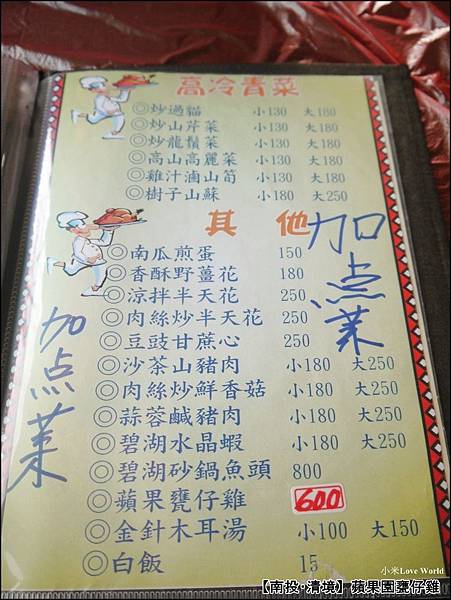 高冷青菜
◎炒過貓 小130 大180
◎炒山芹菜 小130 大180
◎炒龍鬚菜 小130 大180
◎高山高麗菜 小130 大180
◎雞汁滷山筍 小130 大180
◎樹子山蘇 小180 大250
其他
加点菜
◎南瓜煎蛋 150
◎香酥野薑花 180
◎涼拌半天花 250
◎肉絲炒半天花 250
◎豆豉甘蔗心 250
◎沙茶山豬肉 小180 大250
◎肉絲炒鮮香菇 小180 大250
◎蒜蓉鹹豬肉 小180 大250
◎碧湖水晶蝦 小180 大250
◎碧湖砂鍋魚頭 800
◎蘋果甕仔雞 600
◎金針木耳湯 小100 大150
◎白飯 15
加点菜
小米Love World
【南投·清境】蘋果園甕仔雞